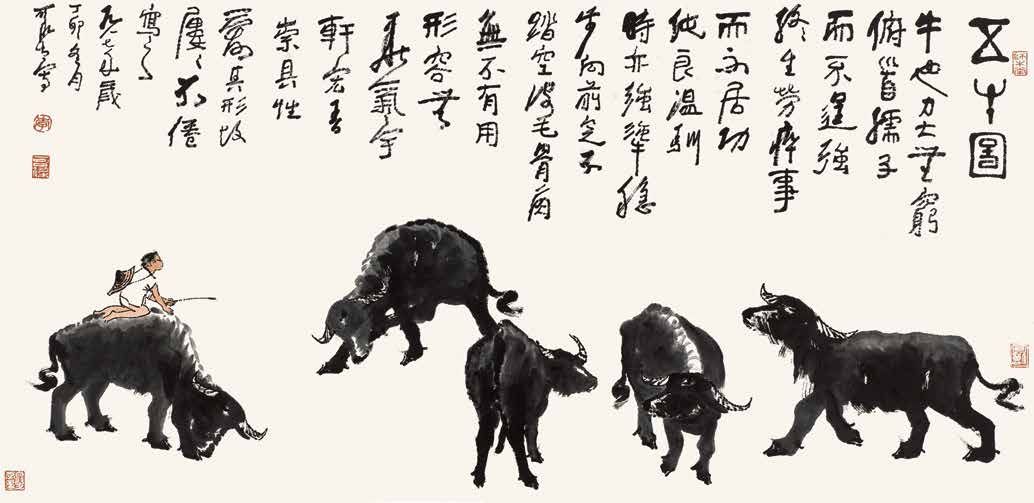 五牛圖
牛也力大無窮
俯首孺子
而不逞強
終生勞瘁事
而不居功
純良溫馴
時亦強犟穩
步向前足不
踏空皮毛骨角
無不有用
形容無
華氣宇
軒宏吾
崇其性
愛其形故
屢〻不倦
寫之
歲
丁卯冬月
可染寫